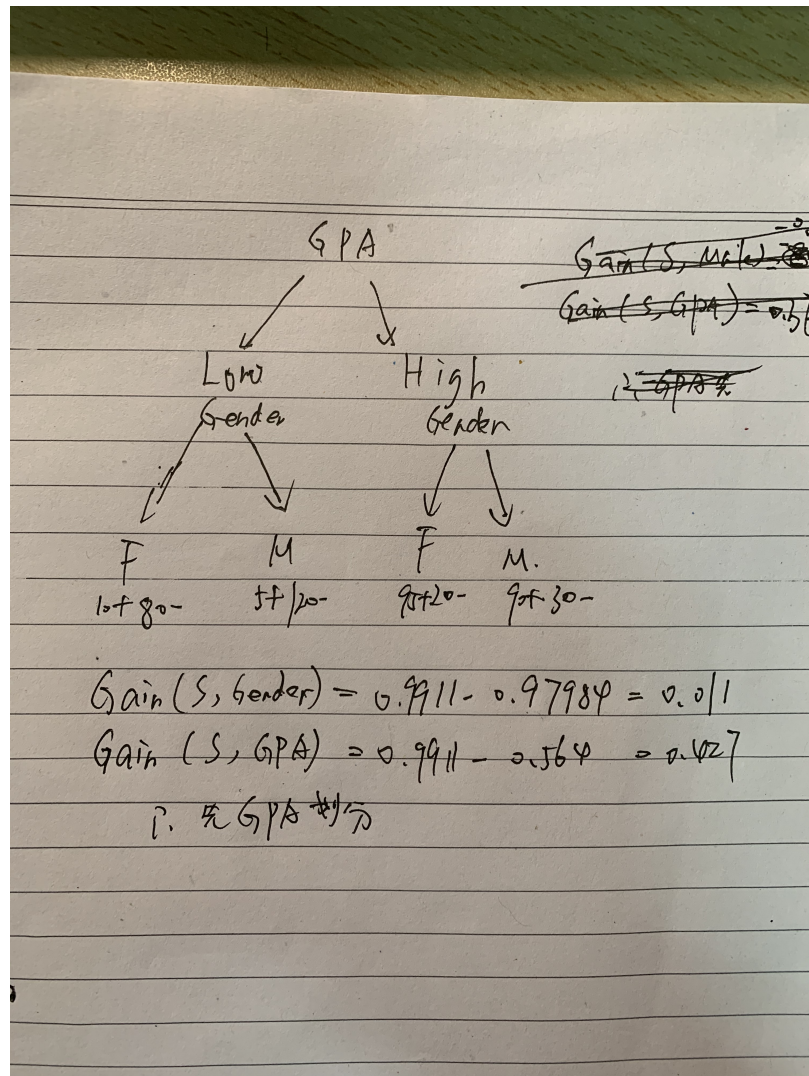 GPA
Gain(S, Male)
Gain(S, GPA) = 0.3
Low High
Gender Gender
F M F M.
10+ 80- 5+ 120- 95+20- 90+ 30-
Gain(S, Gender) = 0.9911 - 0.97984 = 0.011
Gain (S, GPA) = 0.9911 - 0.564 = 0.427
∴ 先GPA划分